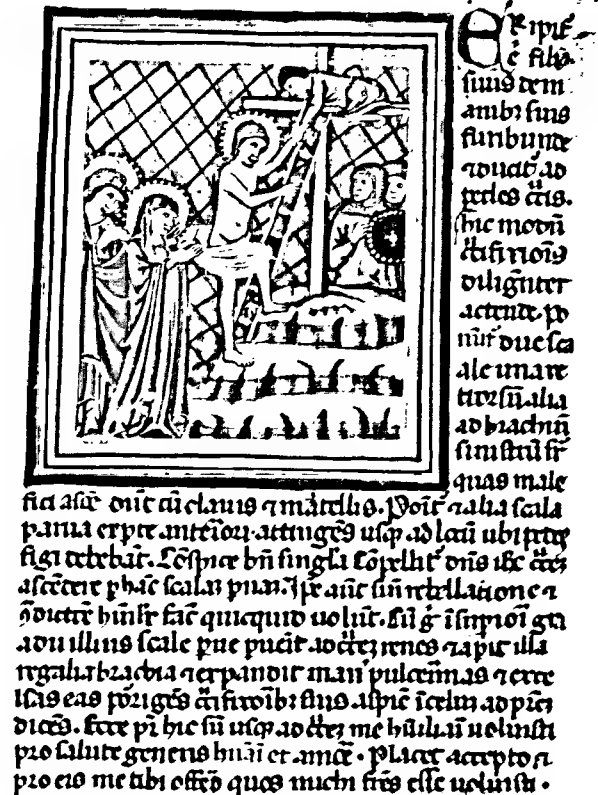 Eripit̃
filiũ
suũ de m
anibꝫ suis
furibunde
⁊ ducit̃ ad
pedes c̃cis.
hic modũ
c̃cifixiõis
diligẽter
actende. po
nũt̃ due sca
ale una re
trorsũ. alia
ad brachiũ
sinistrũ sr̃
quas male
fici ascẽ dũt cũ clauis ⁊ martellis. Ponit̃ ⁊ alia scala
parua ex pte anteriori. attingẽs usqꝫ ad locũ ubi pedes
figi debebãt. Cõspice bñ singĩa Cõpellit̃ dñs ihc c̃cez
ascẽdere p hãc scalaz paruaz. Ipẽ aut̃ sine rebellatione ⁊
ꝯdictiõe hũilr̃ fac̃ quicquid uolũt. Cũ g̃ ĩ supiori gr
adu illius scale parue puẽit ad c̃cez renes ⁊ apit illa
regalia brachia ⁊ expandit manꝰ pulcerrimas ⁊ exce
lsas eas porigẽs c̃cifixoribꝫ suis aspic̃ ĩ celũ ad prẽz
dicẽs. Ecce pr̃ hic sũ usqꝫ ad c̃cez me hũiliari uoluisti
pro salute generis hũãi et Placet accepto ⁊
pro eis me tibi offẽo quos michi fr̃es esse uoluisti.